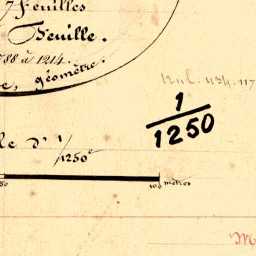 7 Feuilles
Feuille.
788 à 1214.
géomètre.
1
1250
le d' 1/1250e
50 100 mètres